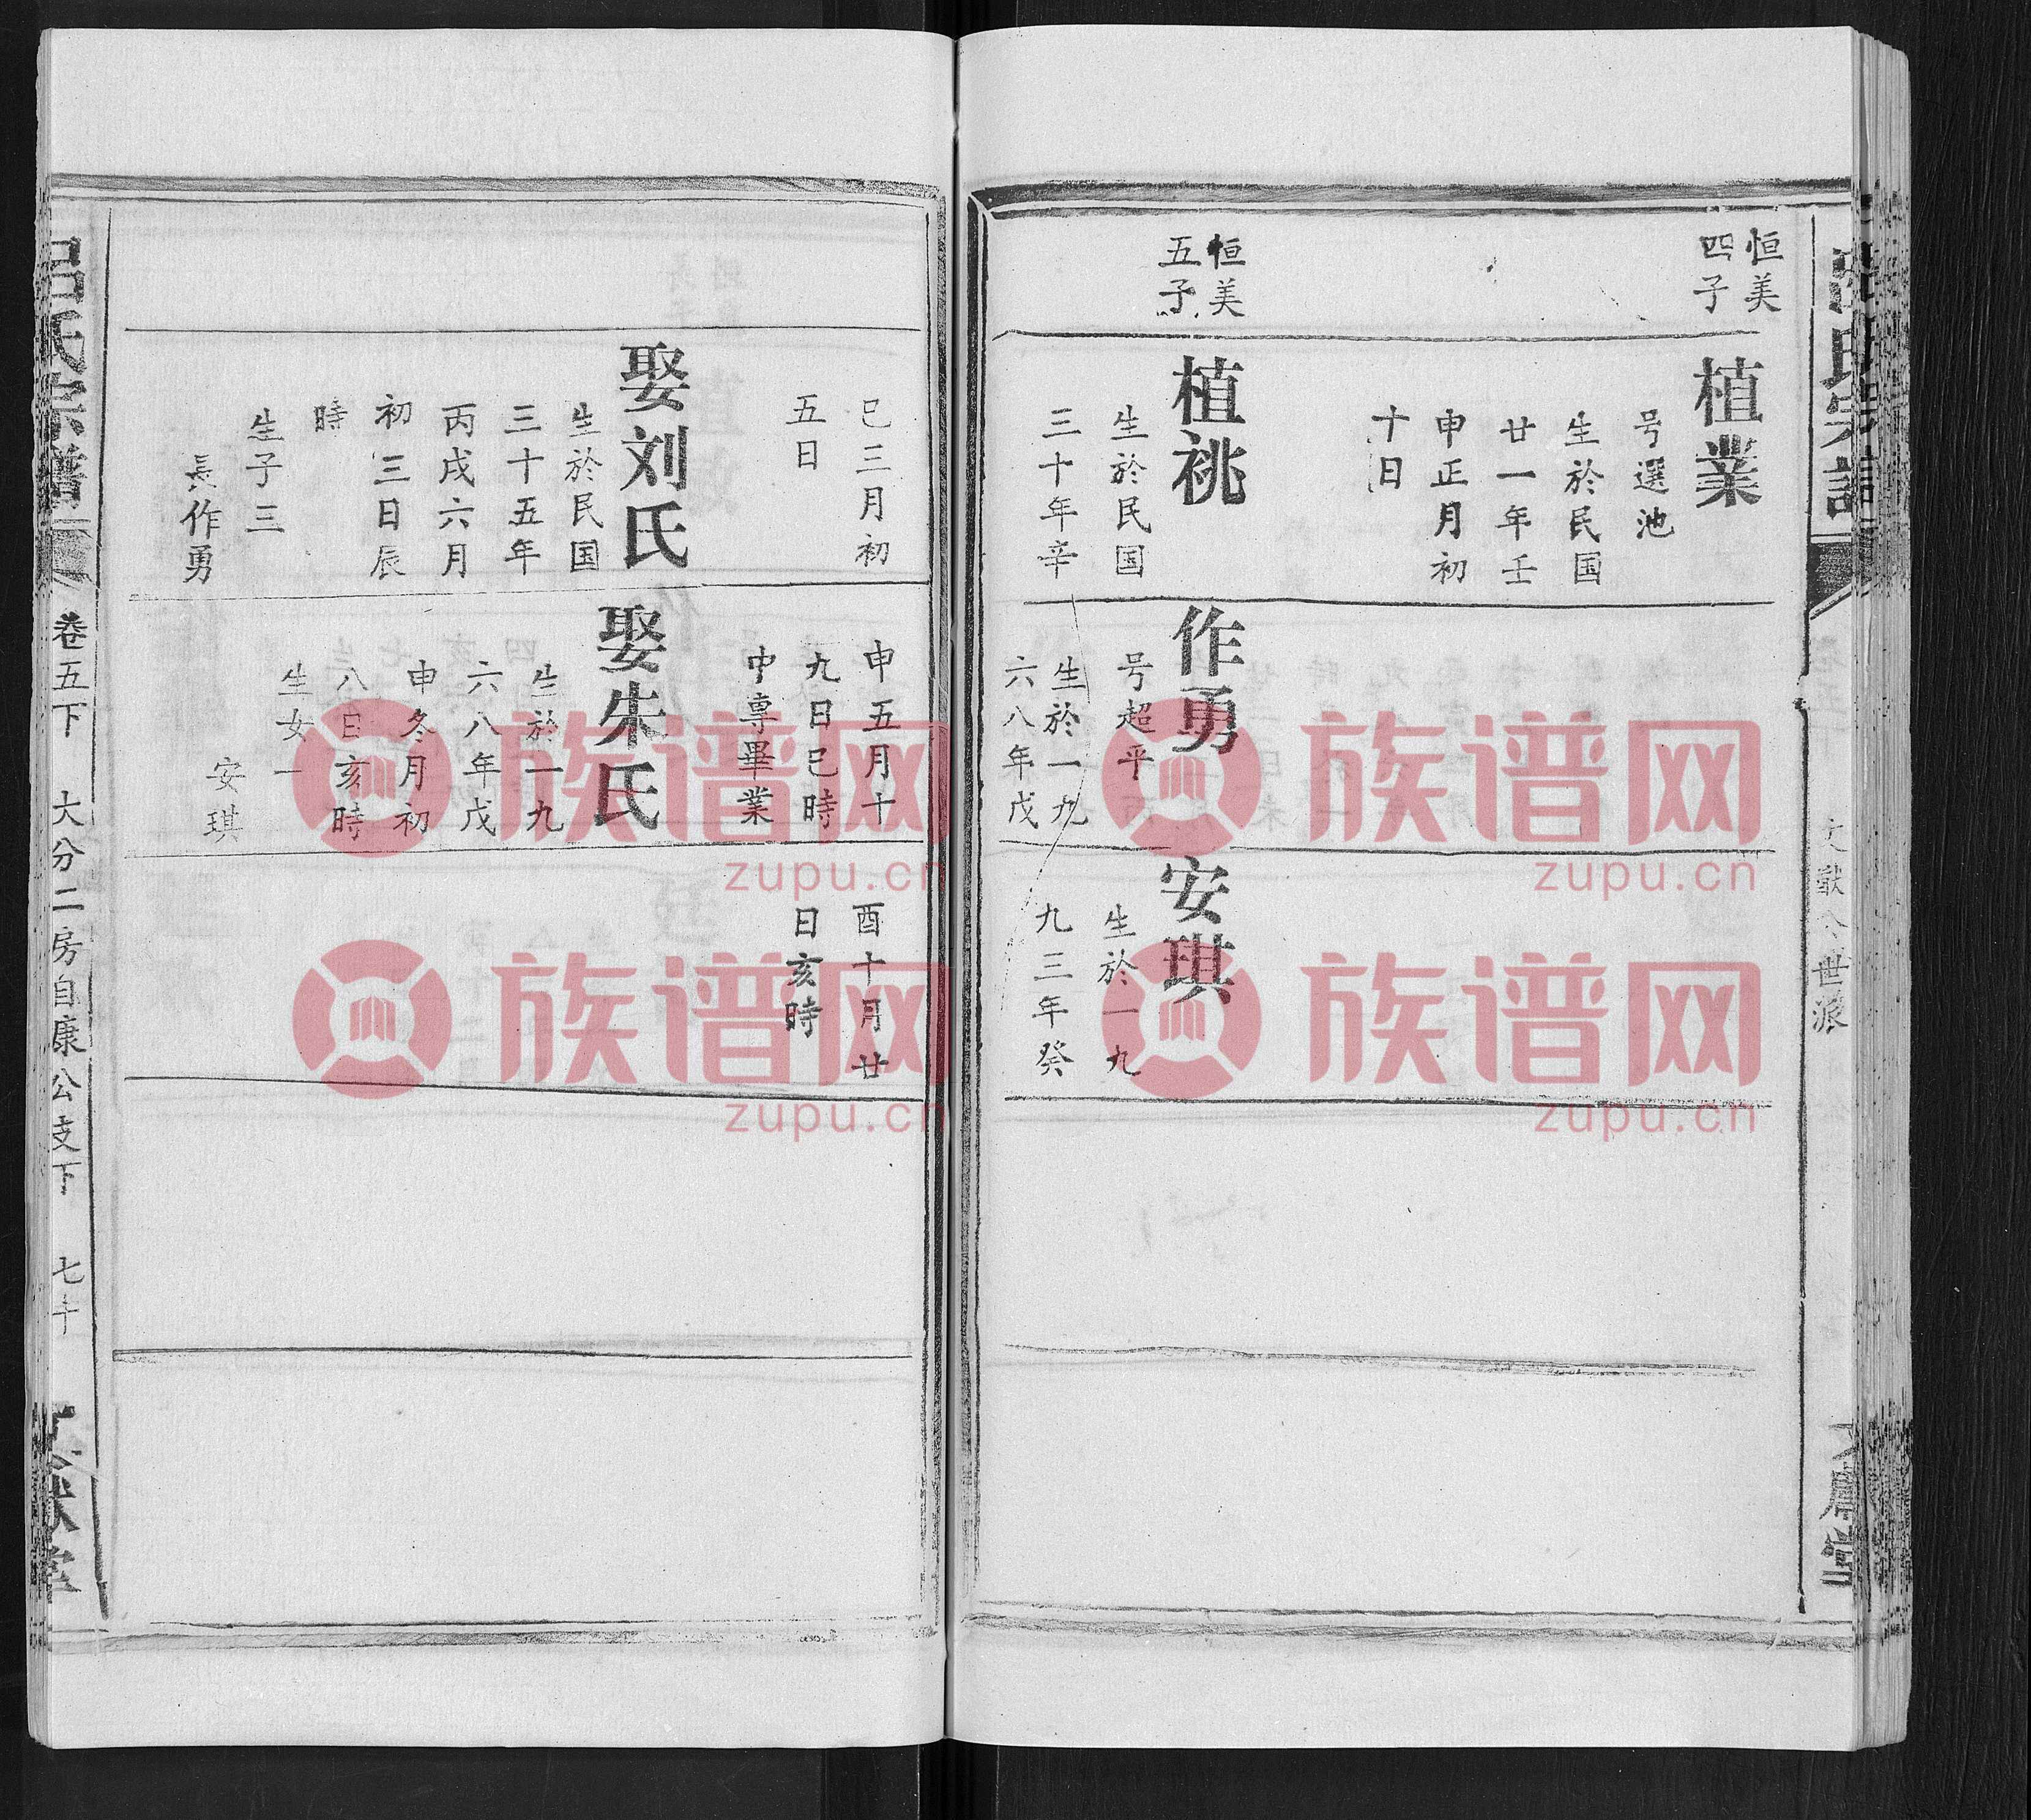 恒美
四子
植業
号選池
生於民国
廿一年壬
申正月初
十日
恒美
五子
植祧
生於民国
三十年辛
巳三月初
五日
娶刘氏
生於民国
三十五年
丙戌六月
初三日辰
時
生子三
長作勇
作勇
号超平
生於一九
六八年戊
申五月十
九日巳時
中専畢業
娶朱氏
生於一九
六八年戊
申冬月初
八日亥時
生女一
安琪
安琪
生於一九
九三年癸
酉十月廿
日亥時
吕氏宗譜
卷五下
大分二房自康公支下
七十
族谱网
zupu.cn
族谱网
zupu.cn
族谱网
zupu.cn
族谱网
zupu.cn